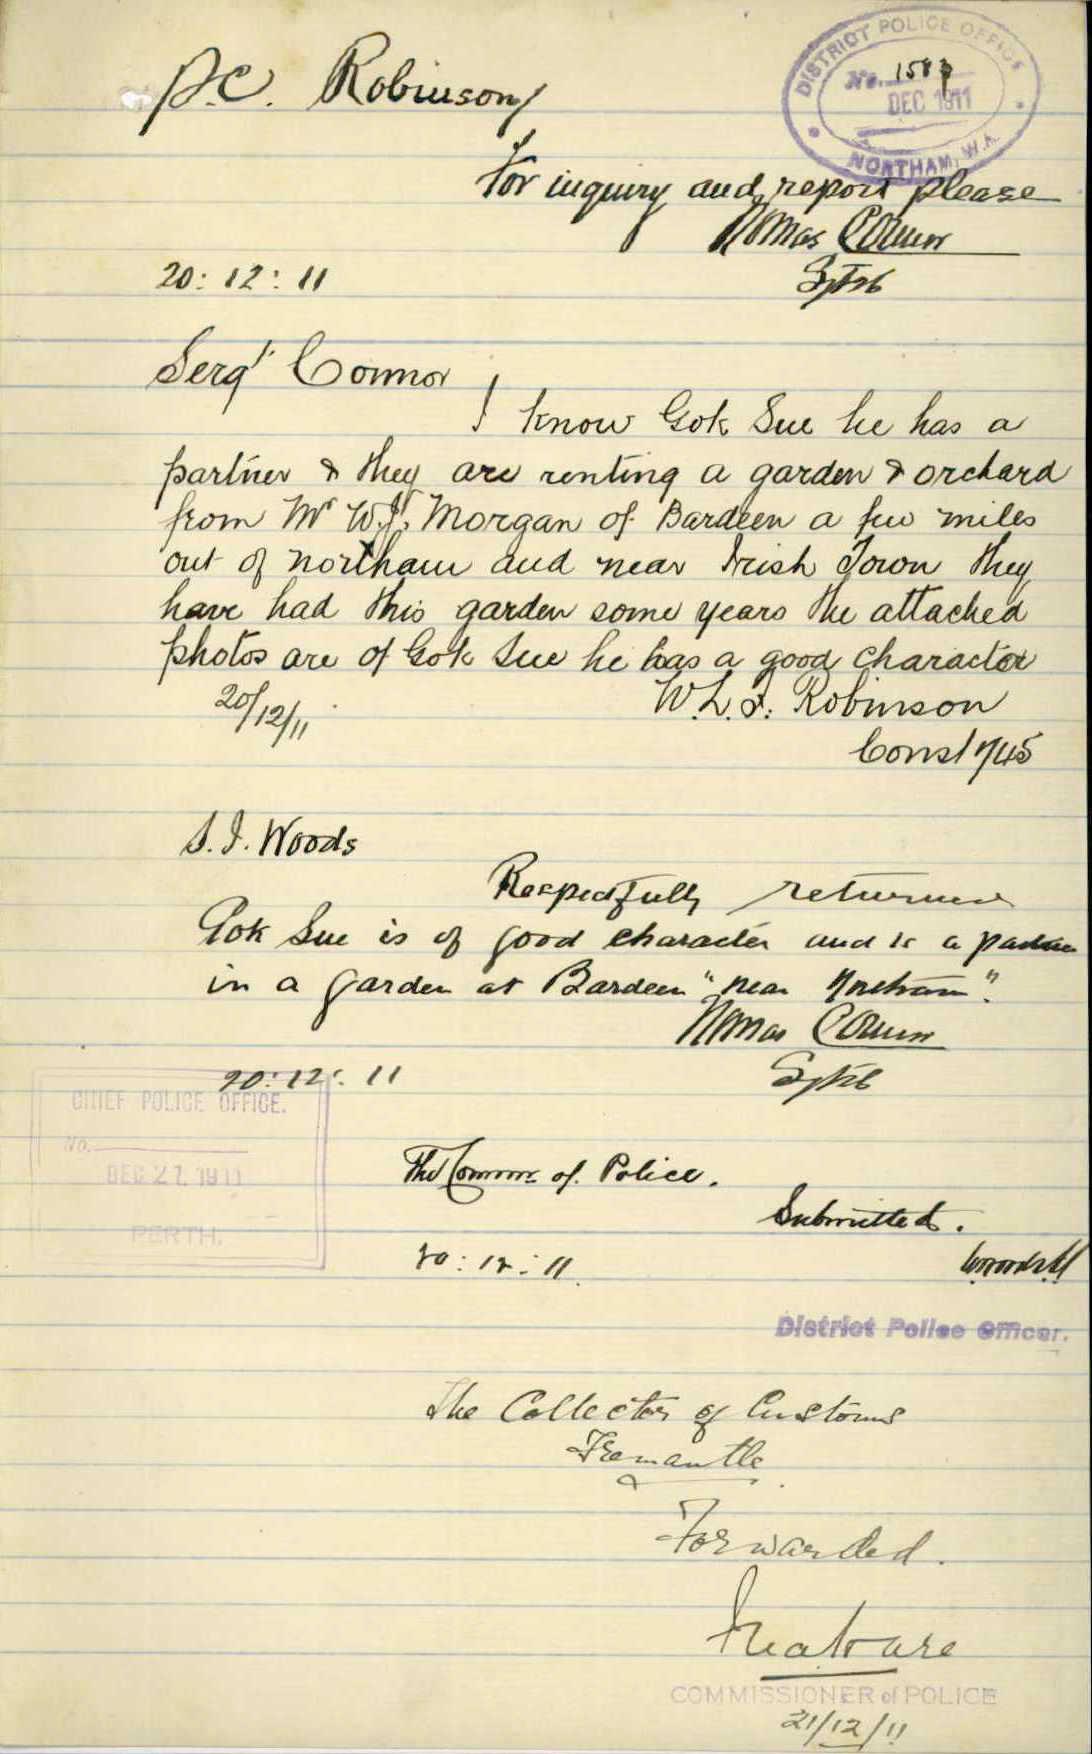 P.C. Robinson
DISTRICT POLICE OFFICE
No. 1587
DEC 1911
NORTHAM, W.A.
For inquiry and report please
Thomas Connor
20: 12: 11
Sergt Connor
I know Gok Sue he has a
partner & they are renting a garden & orchard
from Mr W.J. Morgan of Bardeen a few miles
out of northam and near Irish Town they
have had this garden some years the attached
photos are of Gok Sue he has a good character
20/12/11
W.L.J. Robinson
Const 745
S.I. Woods
Respectfully returned
Gok Sue is of good character and is a partner
in a garden at Bardeen "near Northam".
Thomas Connor
20: 12: 11
CHIEF POLICE OFFICE.
No.
DEC 27. 1911
PERTH.
The Commr of Police.
Submitted.
20: 12: 11
District Police Officer.
The Collector of Customs
Fremantle
Forwarded.
COMMISSIONER of POLICE
21/12/11